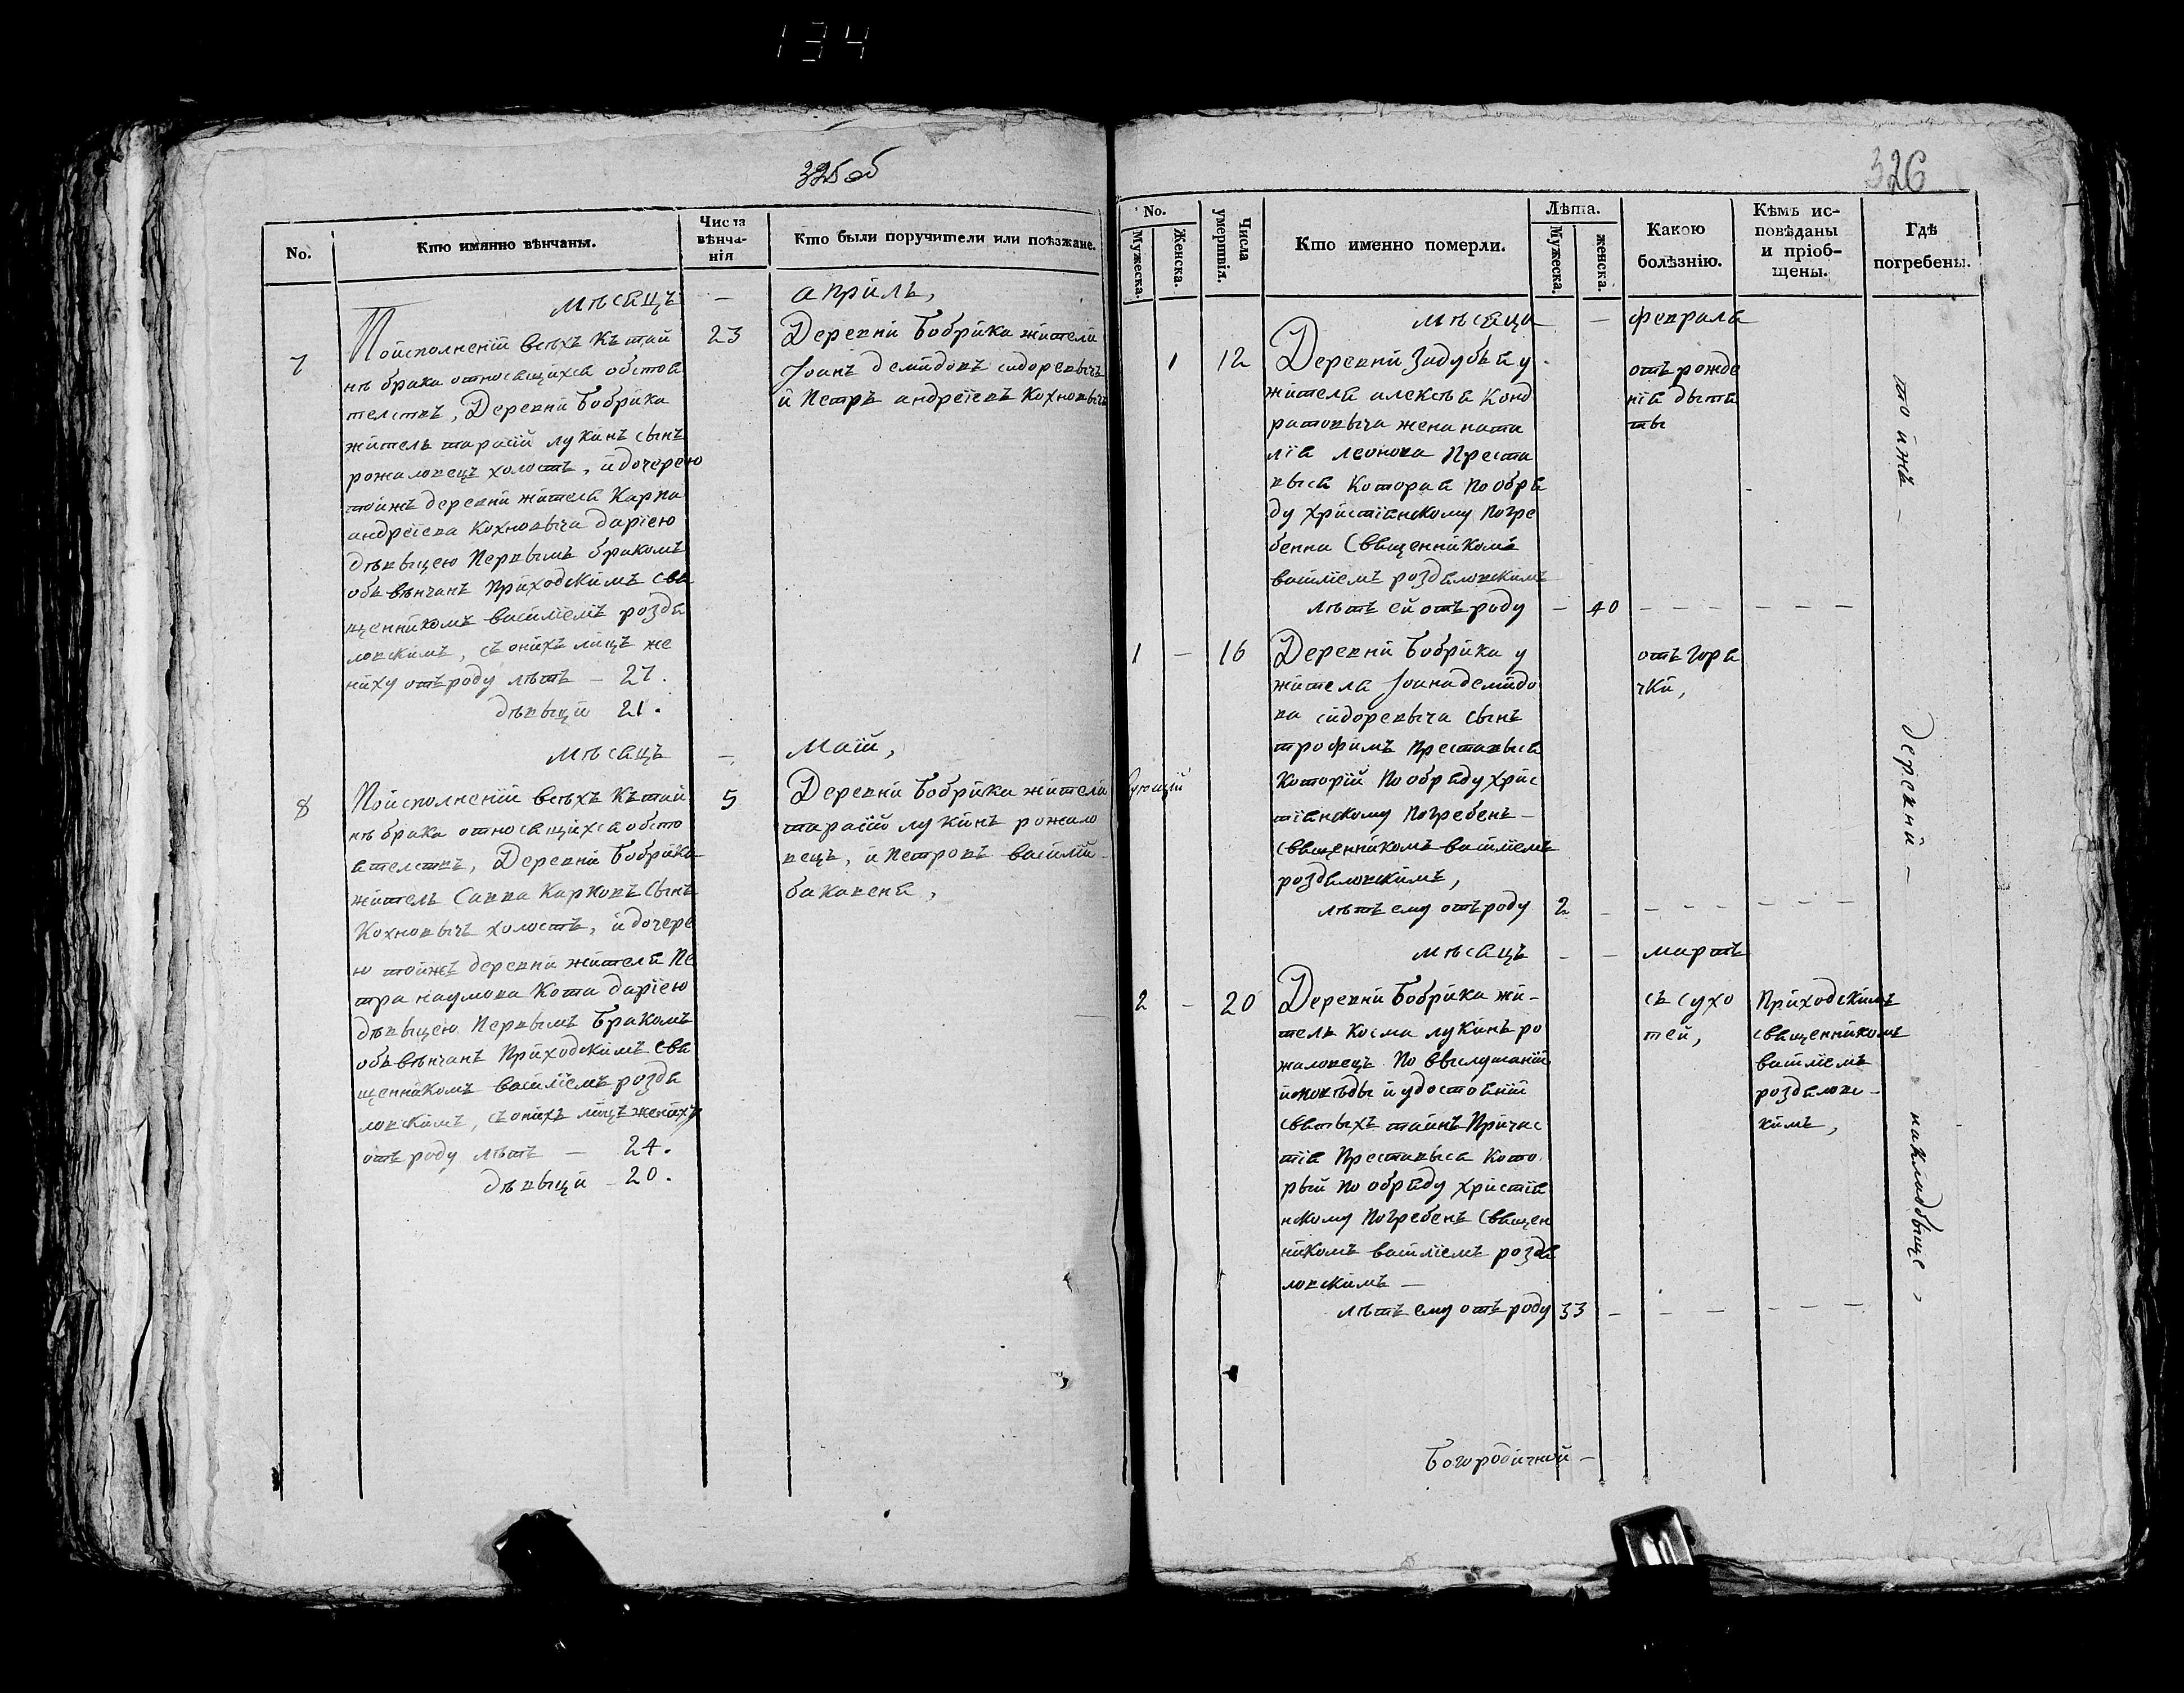 134
325об
No.
Кто имянно вѣнчаны.
Числа вѣнча-
нія
Кто были поручители или поѣзжане.
мѣсяцъ — априль,
7
Поисполненіи всѣхъ къ тай
нѣ брака относящихся обстоя
телствъ, Деревни Бобрика
житель тарасій лукинъ сынъ
рожаловецъ холостъ, и дочерею
тойжъ деревни жителя Карпа
андреіева Кохновыча даріею
дѣвыцею Первымъ бракомъ
обвѣнчанъ Приходскимъ свя
щенникомъ василіемъ роздя
ловскимъ, съ онихъ лицъ же
ниху отъ роду лѣтъ — 27.
дѣвыци 21.
23
Деревни Бобрика жители
Іоанъ демидовъ сидоревычъ
и Петръ андреіевъ Кохновычъ
мѣсяцъ — маій,
8
Поисполненіи всѣхъ къ тай
нѣ брака относящихся обсто
ятелствъ, Деревни Бобрика
житель Савва Карповъ сынъ
Кохновычъ холостъ, и дочере
ю тойже деревни жителя Пе
тра наумова Кота даріею
дѣвыцею Первымъ бракомъ
обвѣнчанъ Приходскимъ свя
щенникомъ василіемъ роздя
ловскимъ, съ онихъ лицъ женихъ
отъ роду лѣтъ — 24.
дѣвыци — 20.
5
Деревни Бобрика жители
тарасій лукинъ рожало
вецъ, и Петровъ василій
баковеня,
326
No.
Мужеска.
Женска.
Числа умертвія.
Кто именно померли.
Лѣта.
Мужеска.
женска.
Какою
болѣзнію.
Кѣмъ ис-
повѣданы
и пріоб-
щены.
Гдѣ
погребены.
мѣсяца — февраля
1 12
Деревни Задубья у
жителя алексѣя Конд
ратовыча жена ната
лія леонова Преста
выся Которая По обря
ду христіянскому Погре
бенна Священникомъ
василіемъ роздяловскимъ
лѣтъ ей отъ роду — 40 — — — — — —
отъ рожде
нія дытя
ты
1 — 16
Деревни Бобрика у
жителя Іоана демидо
ва сидоревыча сынъ
трофимъ Преставыся
Которій По обряду хрис
тіянскому Погребенъ —
священникомъ василіемъ
роздяловскимъ,
лѣтъ ему отъ роду 2 — — — — — — —
отъ горя
чки,
мѣсяцъ — — мартъ
2 — 20
Деревни Бобрика жи-
тель Косма лукинъ ро
жаловецъ По выслушаніи
исповѣды и удостояніи
святыхъ таинъ Причас
тія Преставыся Кото
рый по обряду христія
нскому Погребенъ Священ
никомъ василіемъ роздя
ловскимъ —
лѣтъ ему отъ роду 33 — — — — — — —
съ сухо
тей,
Приходскимъ
священникомъ
василіемъ
роздяловс-
кимъ,
тойжъ — деревни — накладбыще,
Богородичной —